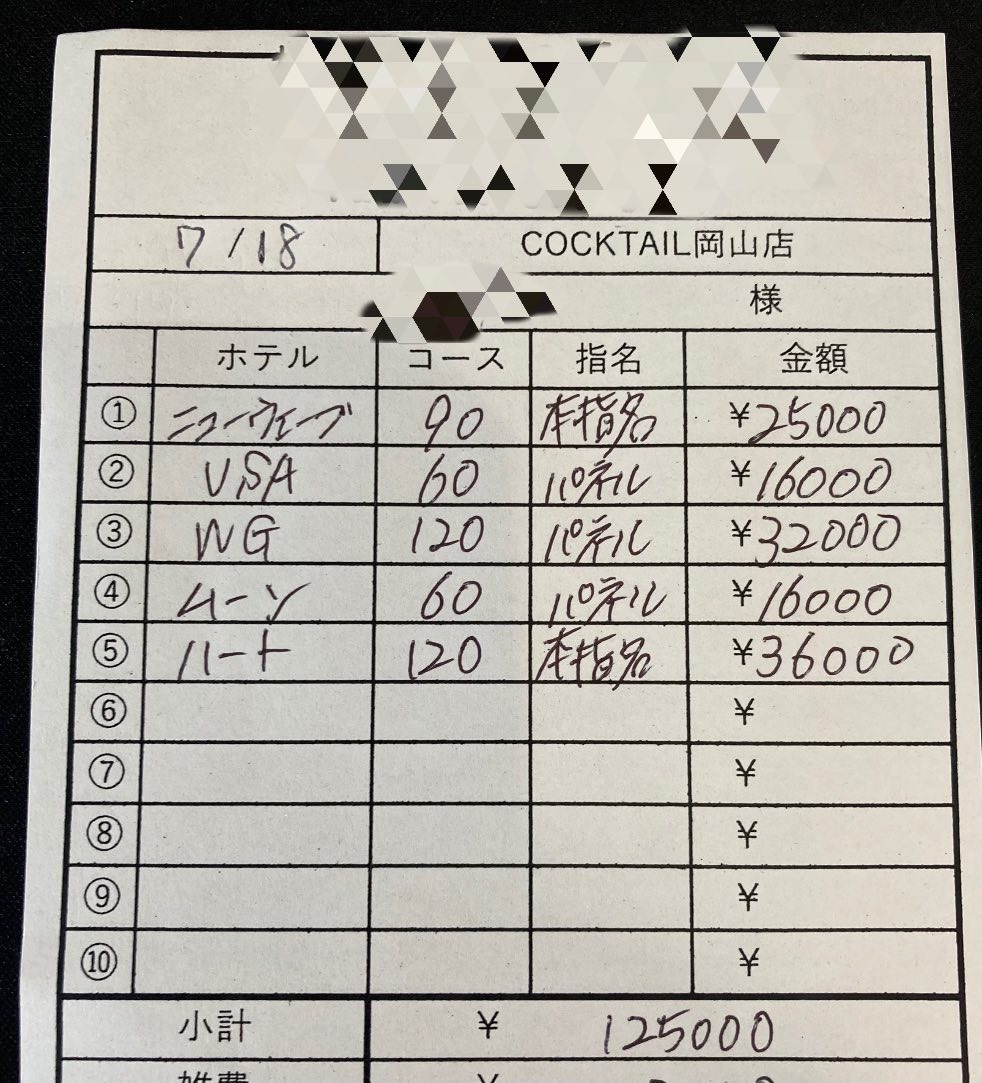 7/18 COCKTAIL岡山店
様
ホテル コース 指名 金額
① ニューウェーブ 90 本指名 ¥25000
② USA 60 パネル ¥16000
③ WG 120 パネル ¥32000
④ ムーン 60 パネル ¥16000
⑤ ハート 120 本指名 ¥36000
⑥ ¥
⑦ ¥
⑧ ¥
⑨ ¥
⑩ ¥
小計 ¥ 125000
雑費 ¥